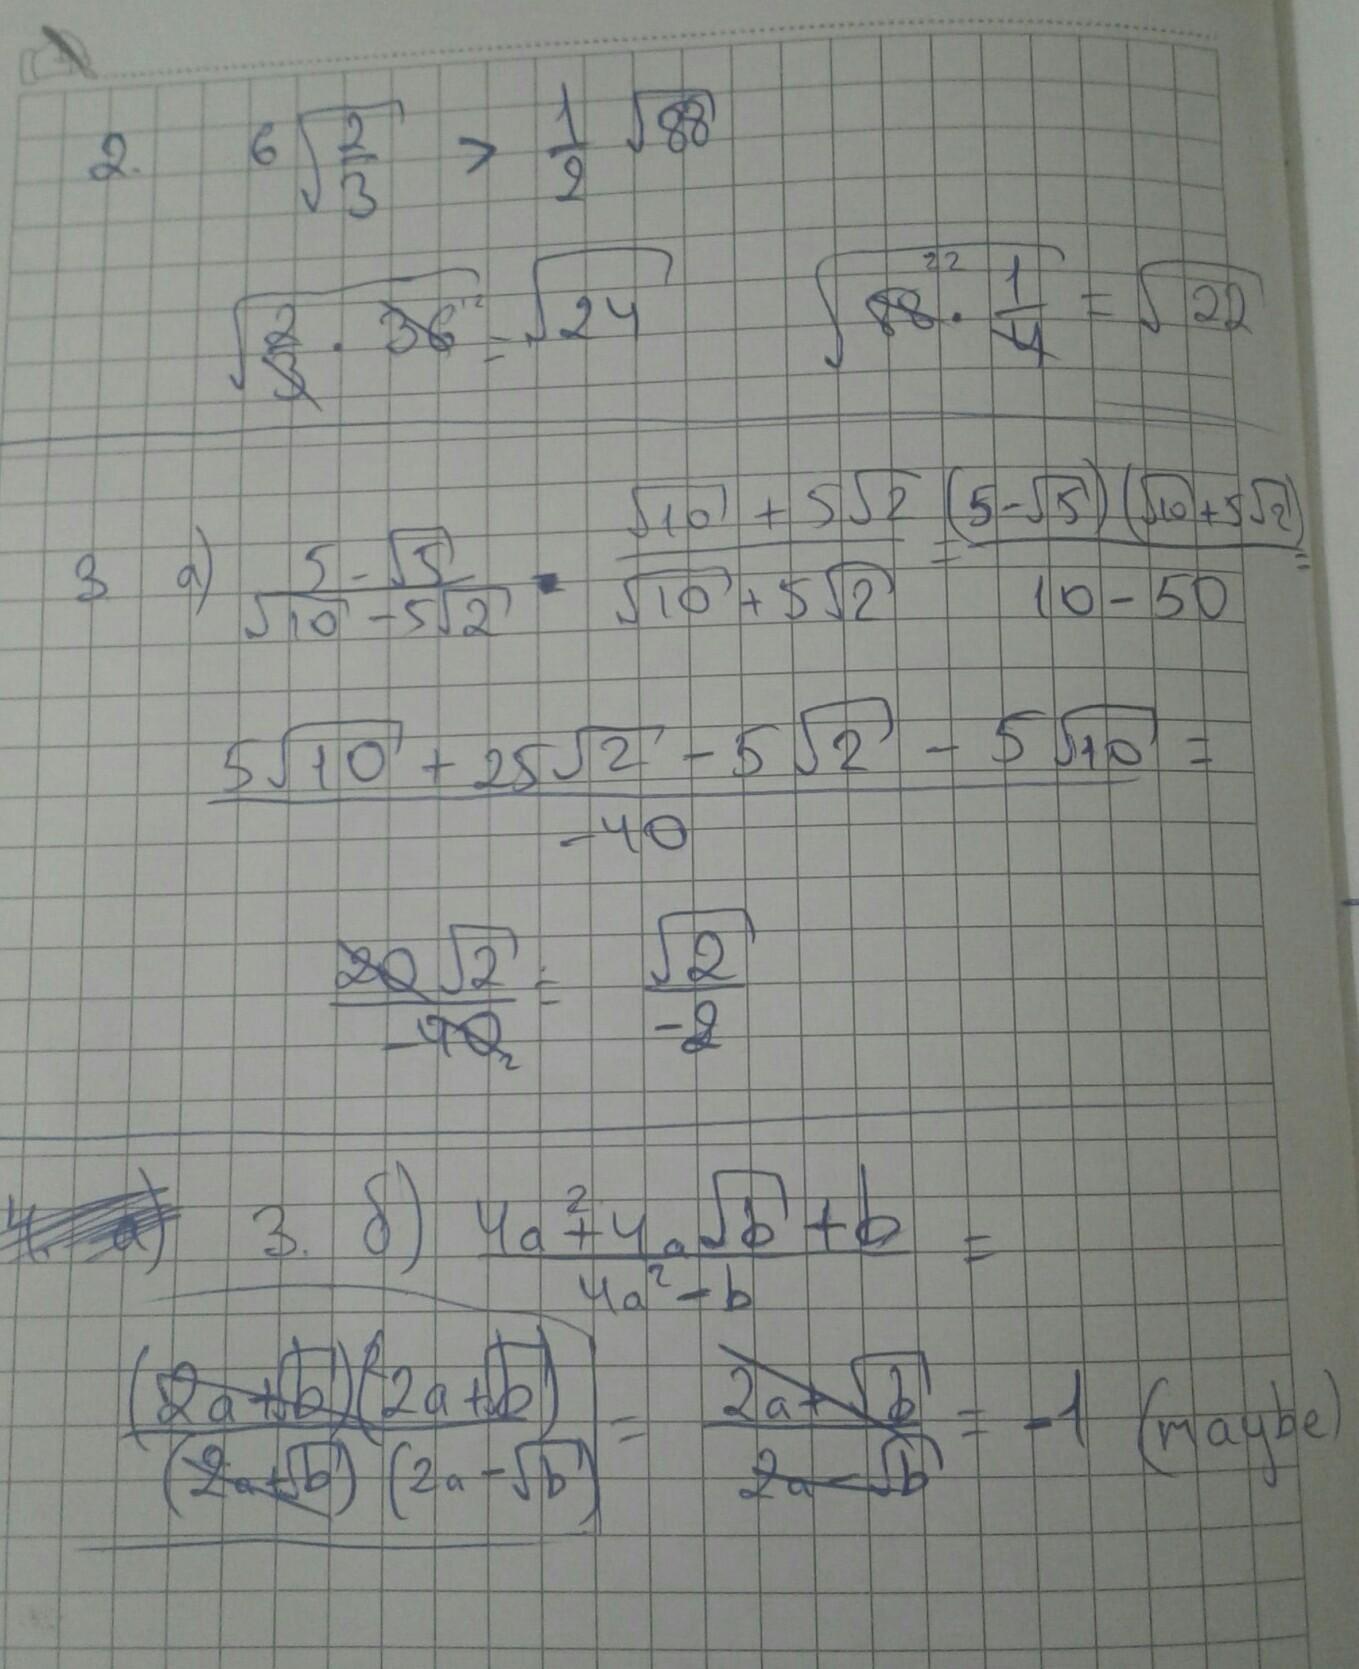 2. 6√(2/3) > 1/2 √88
√(2/3 · 36¹²) = √24 √(88²² · 1/4) = √22
3 а) (5-√5)/(√10-5√2) · (√10+5√2)/(√10+5√2) = ((5-√5)(√10+5√2))/(10-50) =
(5√10 + 25√2 - 5√2 - 5√10)/(-40) =
(20√2)/(-40₂) = √2/(-2)
3. б) (4a²+4a√b+b)/(4a²-b) =
((2a+√b)(2a+√b))/((2a+√b)(2a-√b)) = (2a+√b)/(2a-√b) = -1 (maybe)